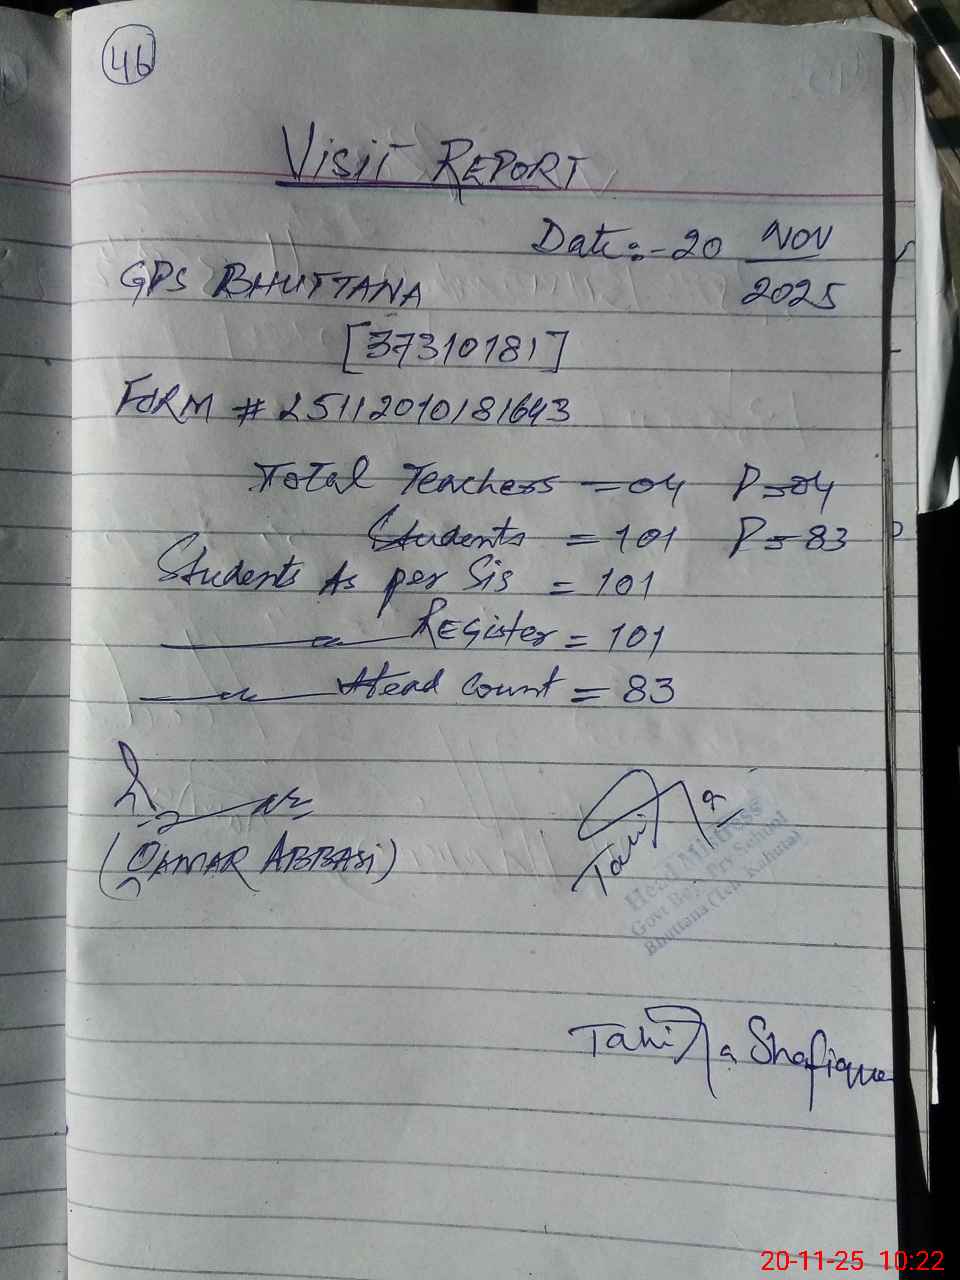 46
VISIT REPORT
Date:- 20 NOV
2025
GPS BHUTTANA
[37310181]
FORM # 25112010181643
Total Teachers = 04 P=04
Students = 101 P=83
Students As per Sis = 101
Register = 101
Head Count = 83
(QAMAR ABBASI)
Tahira
Head Mistress
Govt Boys Pry School
Bhuttana (Teh. Kahuta)
Tahira Shafique
20-11-25 10:22